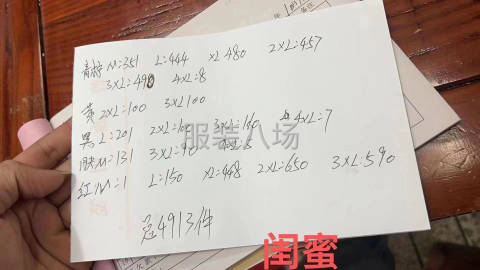 青柠 M:351 L:444 XL 480 2XL:457
3XL:490 4XL:8
黄 2XL:100 3XL100
黑 L:201 2XL:100 3XL:140 4XL:7
肤 M:131 3XL:90
红 M:1 L:150 XL:448 2XL:650 3XL:590
总4913件
服装八场
闺蜜